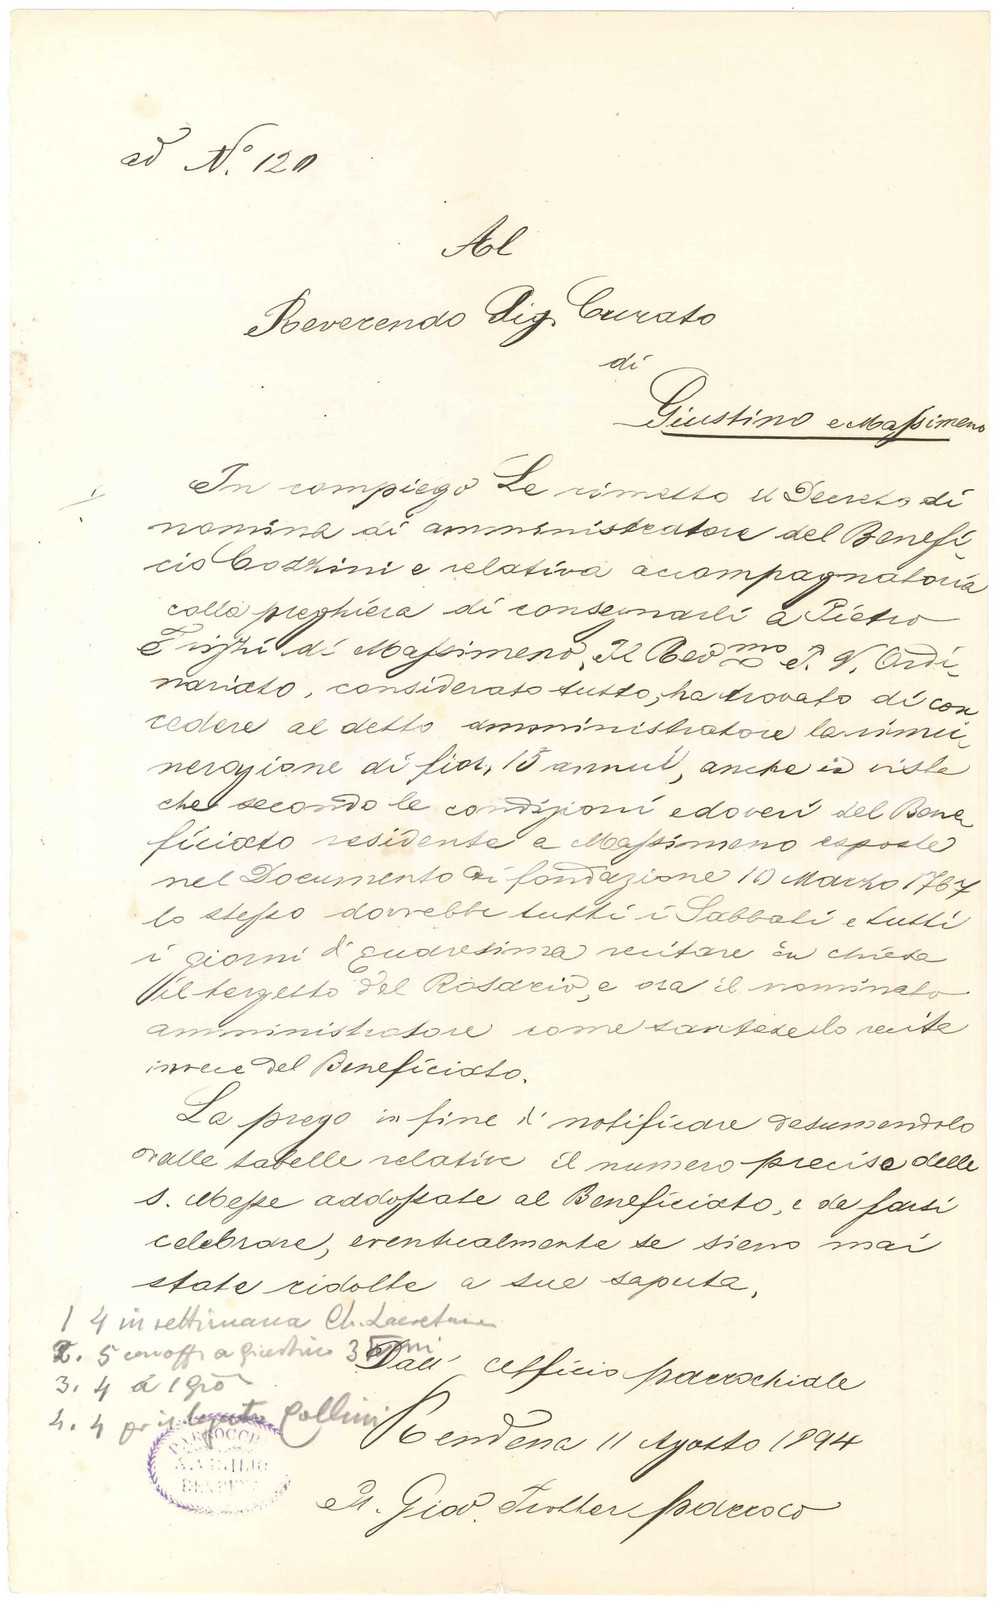 ad N.° 120
Al
Reverendo Sig. Curato
di
Giustino e Massimeno
In compiego Le rimetto il Decreto di
nomina di amministratore del Benefi-
cio Cozzini e relativa accompagnatoria
colla preghiera di consegnarli a Pietro
di Massimeno. Il Revd.mo P. V. Ordi-
nariato, considerato tutto, ha trovato di con
cedere al detto amministratore la rimu-
nerazione di fior. 15 annui, anche in vista
che secondo le condizioni e doveri del Bene-
ficiato residente a Massimeno esposte
nel Documento di fondazione 10 Marzo 1767
lo stesso dovrebbe tutti i Sabbati e tutti
i giorni di quaresima recitare in chiesa
il terzetto del Rosario, e ora il nominato
amministratore come santese lo recita
invece del Beneficiato.
La prego in fine di notificare desumendolo
dalle tabelle relative il numero preciso delle
s. Messe addossate al Beneficiato, e da farsi
celebrare, eventualmente se sieno mai
state ridotte a sue saputa.
1 4 in settimana Ch.
2. 5 con off. a Giustino 3
3. 4 a 1
4. 4 pr il legato Pollini
Dall' Ufficio parrochiale
Rendena 11 Agosto 1894
Giov. Trotter parroco
PARROCCHIA
S. VIGILIO
RENDENA